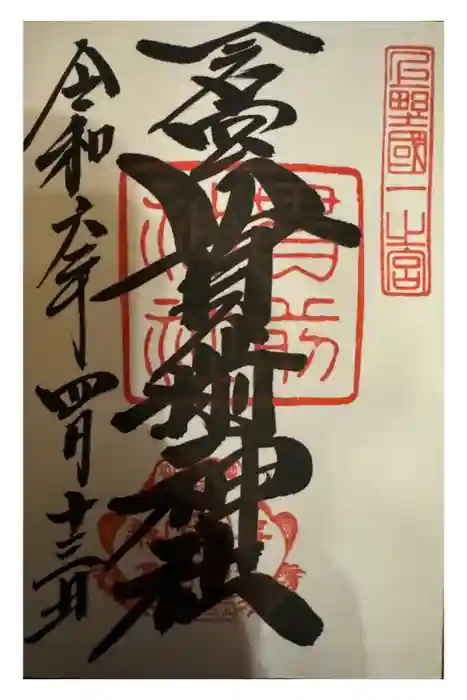 上野國一之宮
一之宮貫前神社
貫前
神社
令和六年四月十三日